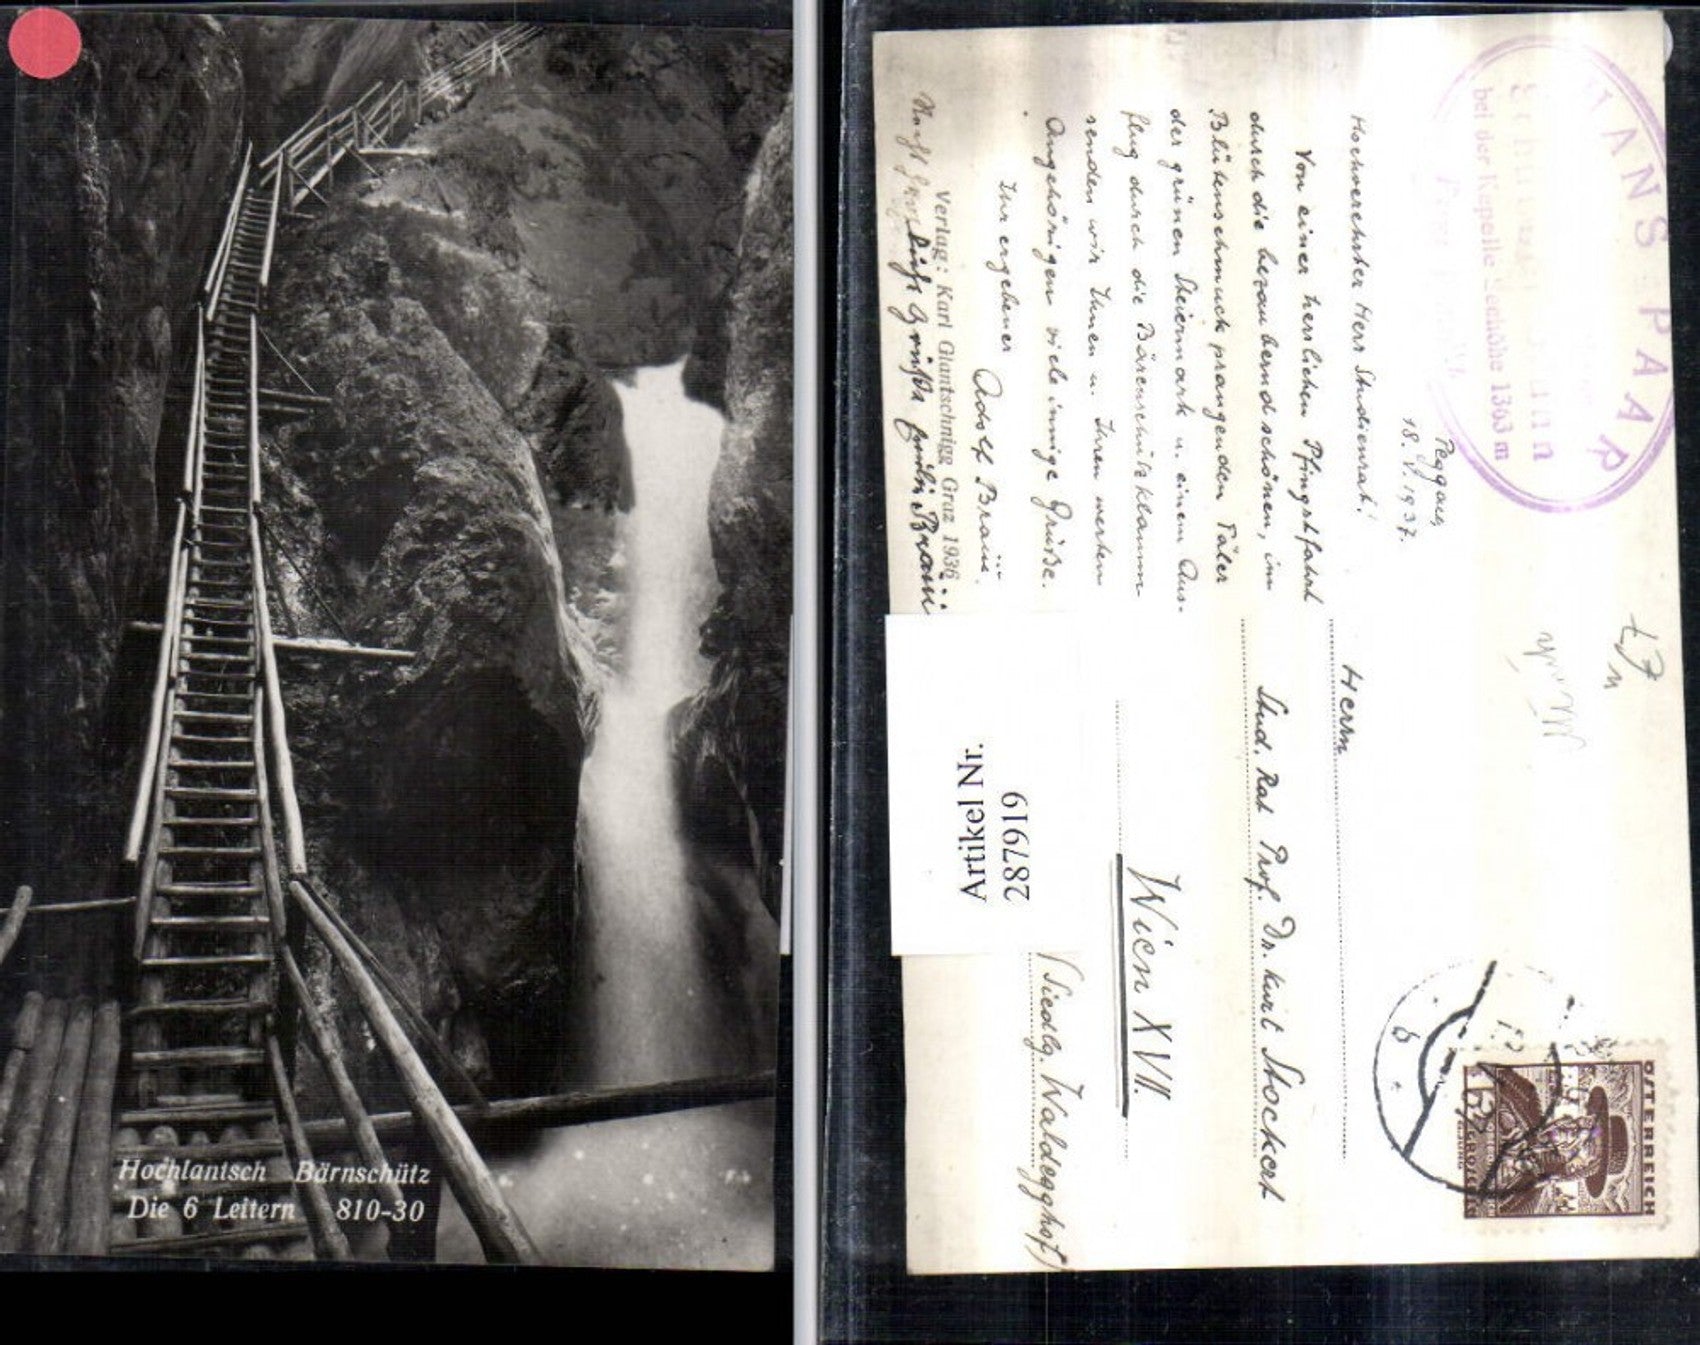 Hochlantsch Bärnschütz
Die 6 Leitern 810-30
HANS PAAR
bei der Kapelle Seehöhe 1363 m
Peggau,
18.V.1937.
Hochverehrter Herr Studienrat!
Von einer herrlichen Pfingstfahrt
durch die bezaubernd schönen, im
Blütenschmuck prangenden Täler
der grünen Steiermark u. einem Aus-
flug durch die Bärenschützklamm
senden wir Ihnen u. Ihren werten
Angehörigen viele innige Grüße.
Ihr ergebener
Adolf Braun.
Verlag: Karl Glantschnigg Graz 1936
Herrn
Stud. Rat Prof. Dr. Kurt Stockert
Wien XVII.
(Siedlg. Waldegghof)
Artikel Nr.
287919
ÖSTERREICH